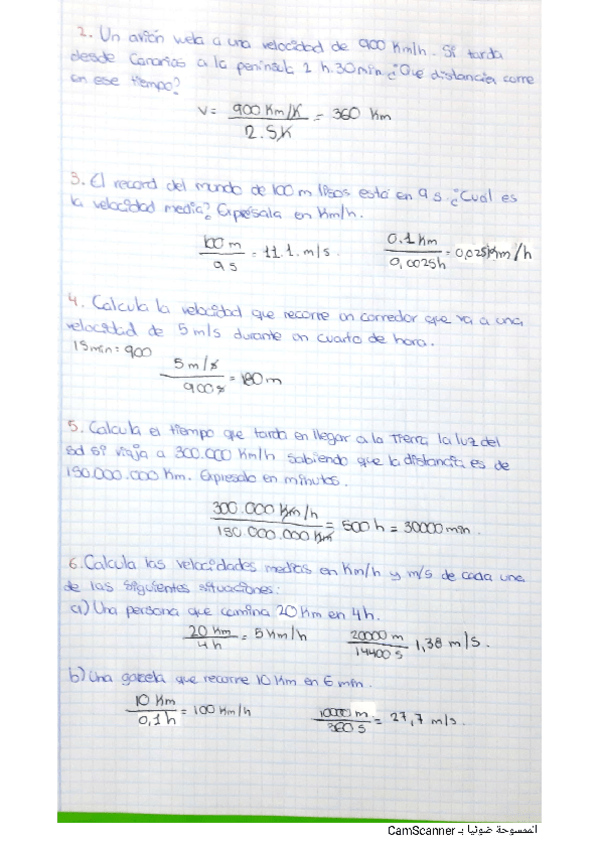 2. Un avión vuela a una velocidad de 900 Km/h. Si tarda
desde Canarias a la peninsul. 2 h. 30 min ¿Que distancia corre
en ese tiempo?
V = 900 Km/h / 2.5 h = 360 Km
3. El record del mundo de 100 m lisos está en 9 s. ¿Cual es
la velocidad media? Exprésala en Km/h.
100 m / 9 s = 11.1. m/s. 0.1 Km / 0,0025h = 0,025 Km/h
4. Calcula la velocidad que recorre un corredor que va a una
velocidad de 5 m/s durante un cuarto de hora.
15 min = 900
5 m/s / 900 s = 180 m
5. Calcula el tiempo que tarda en llegar a la Tierra la luz del
sol si viaja a 300.000 Km/h sabiendo que la distancia es de
150.000.000 Km. Expresalo en minutos.
300.000 Km/h / 150.000.000 Km = 500 h = 30000 min.
6. Calcula las velocidades medias en Km/h y m/s de cada una
de las siguientes situaciones:
a) Una persona que camina 20 Km en 4h.
20 Km / 4 h = 5 Km/h 20000 m / 14400 s 1,38 m/s.
b) Una gacela que recorre 10 Km en 6 min.
10 Km / 0,1 h = 100 Km/h 10000 m / 360 s = 27,7 m/s.
الممسوحة ضوئيا بـ CamScanner